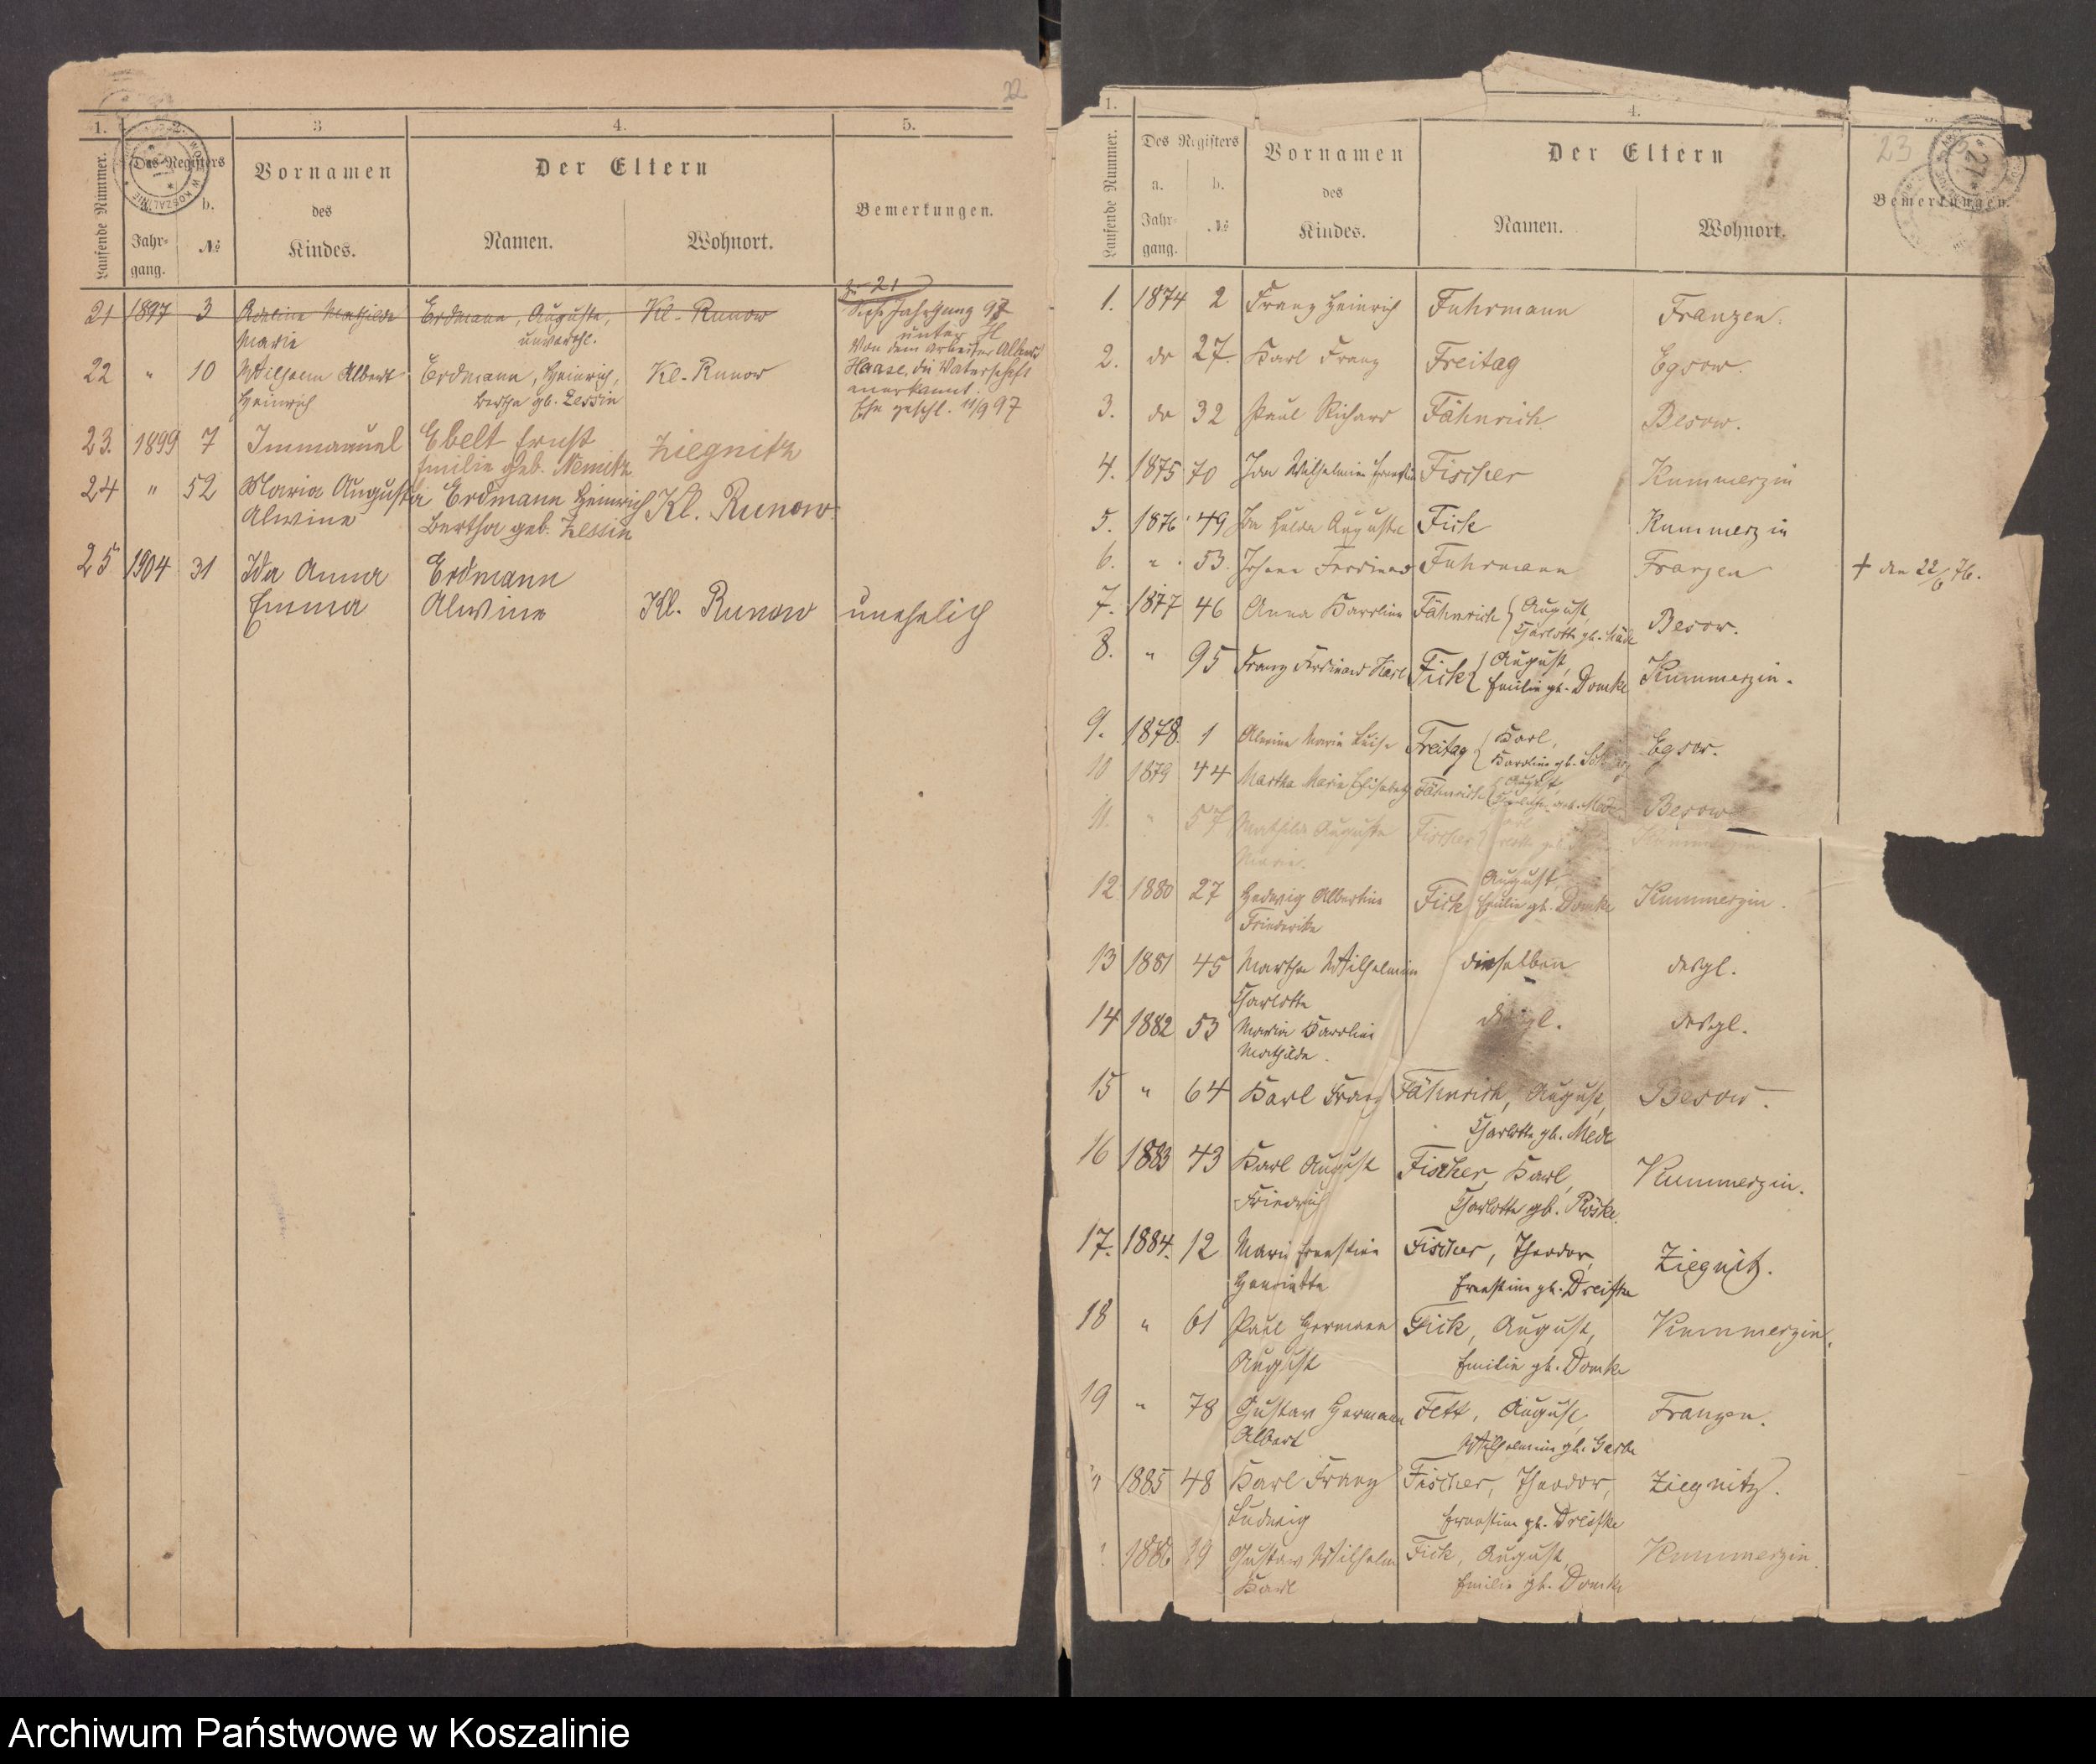 22
1. 2. 3 4. 5.
Laufende Nummer.
Des Registers
b.
Jahr-
gang.
№
Vornamen
des
Kindes.
Der Eltern
Namen.
Wohnort.
Bemerkungen.
zu 21
21 1897 3 Adeline Mathilde Erdmann, Auguste, Kl. Runow Siehe Jahrgang 97
Marie unverehl. unter H
Von dem Arbeiter Albert
22 " 10 Wilhelm Albert Erdmann, Heinrich, Kl. Runow Haase, die Vaterschaft
Heinrich Bertha gb. Zessin anerkannt.
Ehe geschl. 11/9 97
23. 1899 7 Immanuel Ebelt Ernst Ziegnitz
Emilie geb. Nemitz
24 " 52 Maria Augusta Erdmann Heinrich Kl. Runow.
Alwine Bertha geb. Zessin
25 1904 31 Ida Anna Erdmann
Emma Alwine Kl. Runow unehelich
1. 4. 5.
23
Laufende Nummer.
Des Registers
a. b.
Jahr-
gang.
№
Vornamen
des
Kindes.
Der Eltern
Namen.
Wohnort.
Bemerkungen.
1. 1874 2 Franz Heinrich Fuhrmann Franzen.
2. do 27. Karl Franz Freitag Egsow.
3. do 32 Paul Richard Fähnrich Besow.
4. 1875 70 Ida Wilhelmine Ernestine Fischer Kummerzin
5. 1876 49 Ida Hulda Auguste Fick Kummerzin
6. " 53. Johann Ferdinand Fuhrmann Franzen † den 22/6 76.
7. 1877 46 Anna Karoline Fähnrich August,
Charlotte gb. Mäde Besow.
8. " 95 Franz Ferdinand Karl Fick August,
Emilie gb. Domke Kummerzin.
9. 1878. 1 Alwine Marie Luise Freitag Karl,
Karoline gb. Egsow.
10 1879 44 Martha Marie Elisabeth Fähnrich August,
Charlotte geb. Mäde Besow
11. " 57 Mathilde Auguste Fischer
Marie.
12 1880 27 Hedwig Albertine Fick August,
Friederike Emilie gb. Domke Kummerzin.
13 1881 45 Martha Wilhelmine dieselben desgl.
Charlotte
14 1882 53 Maria Karoline desgl. desgl.
Mathilde.
15 " 64 Karl Franz Fähnrich, August, Besow.
Charlotte gb. Mede
16 1883 43 Karl August Fischer, Karl, Kummerzin.
Friedrich Charlotte gb. Röske.
17. 1884. 12 Marie Ernestine Fischer, Theodor, Ziegnitz.
Henriette Ernestine gb. Dreifke
18 " 61 Paul Hermann Fick, August, Kummerzin.
August Emilie gb. Domke
19 " 78 Gustav Hermann Fett, August, Franzen.
Albert Wilhelmine gb. Garbe
1885 48 Karl Franz Fischer, Theodor, Ziegnitz.
Ludwig Ernestine gb. Dreifke
1886 19 Gustav Wilhelm Fick, August, Kummerzin.
Karl Emilie gb. Domke
Archiwum Państwowe w Koszalinie